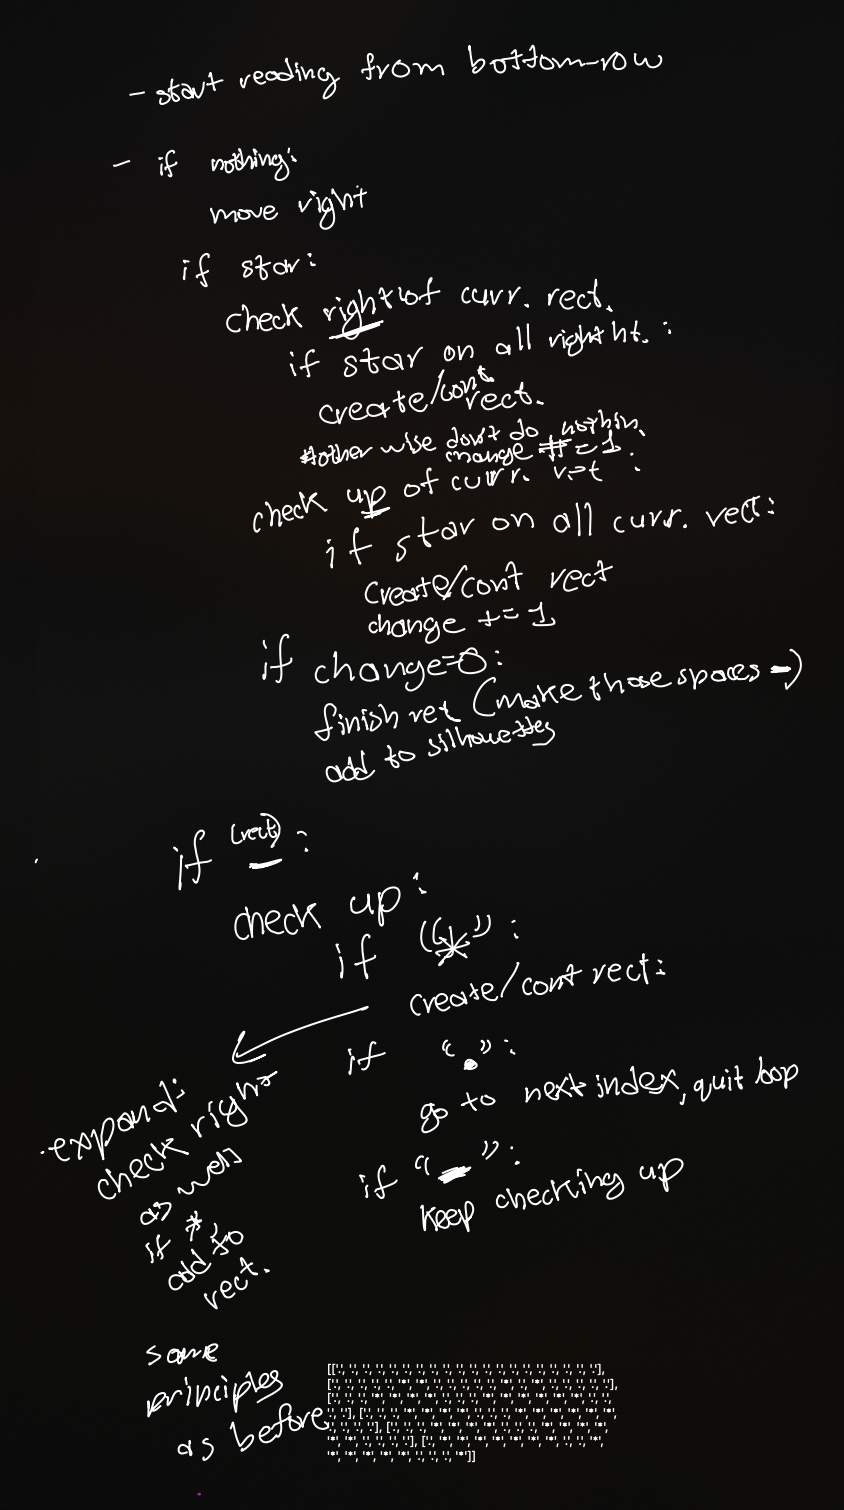 - start reading from bottom-row
- if nothing:
move right
if star:
check right of curr. rect.
if star on all right ht. :
create/cont rect.
#otherwise don't do nothin.
change += 1
check up of curr. rect :
if star on all curr. rect:
create/cont rect
change += 1
if change=0:
finish rect (make those spaces -)
add to silhouettes
if (rect) _ :
check up:
if "*" :
create/cont rect:
if "." :
go to next index, quit loop
if "-" :
keep checking up
expand:
check right
as well
if *,
add to
rect.
same
principles
as before